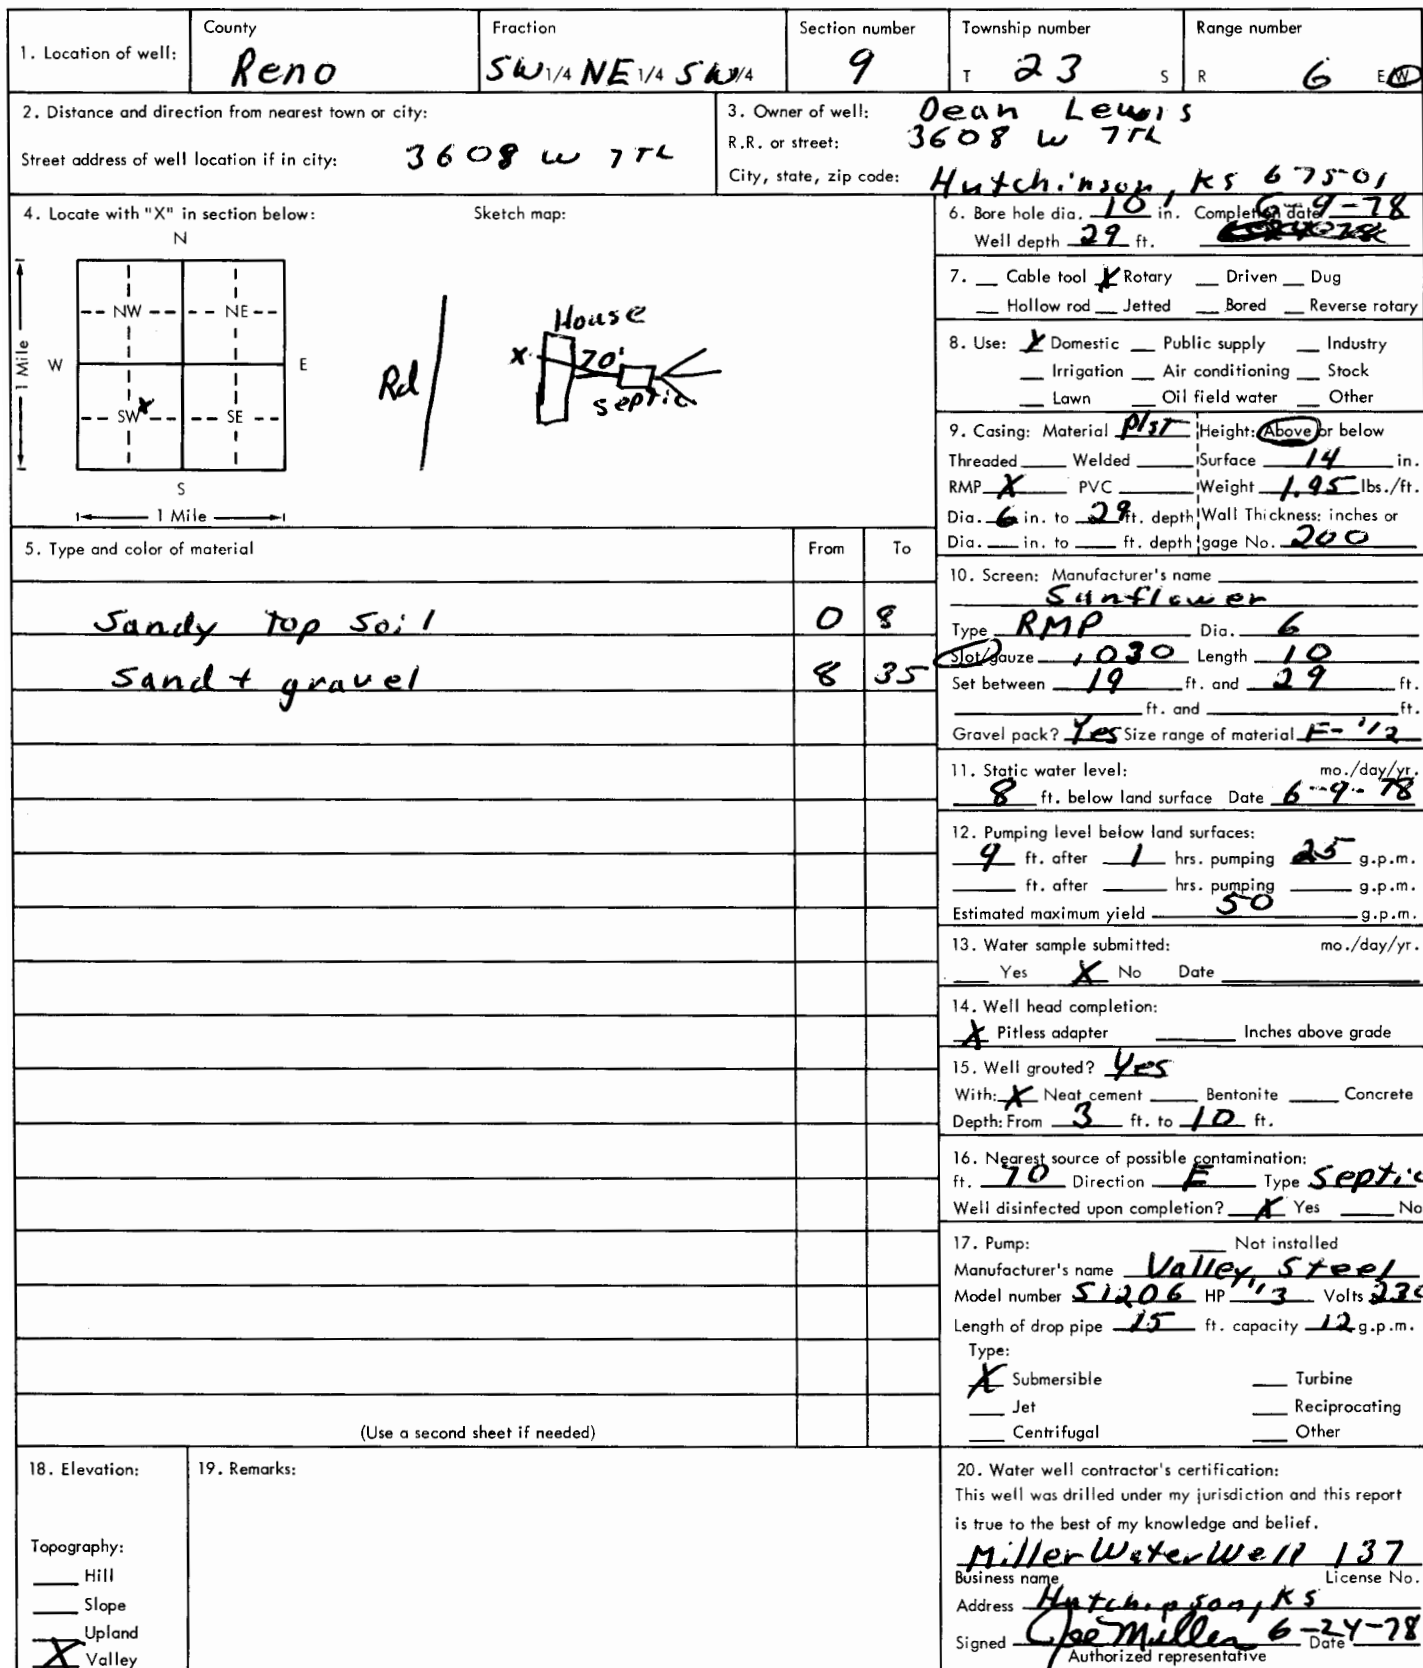 1. Location of well:
County
Reno
Fraction
SW 1/4 NE 1/4 SW 1/4
Section number
9
Township number
T 23 S
Range number
R 6 E W
2. Distance and direction from nearest town or city:
Street address of well location if in city: 3608 W 7th
3. Owner of well: Dean Lewis
R.R. or street: 3608 W 7th
City, state, zip code: Hutchinson, KS 67501
4. Locate with "X" in section below:
Sketch map:
N
NW NE
W E
1 Mile
SW X SE
S
1 Mile
Rd
House
X 70'
Septic
5. Type and color of material From To
Sandy top soil 0 8
Sand + gravel 8 35
(Use a second sheet if needed)
6. Bore hole dia. 10 in. Completion date 6-9-78
Well depth 29 ft.
7. __ Cable tool X Rotary __ Driven __ Dug
__ Hollow rod __ Jetted __ Bored __ Reverse rotary
8. Use: X Domestic __ Public supply __ Industry
__ Irrigation __ Air conditioning __ Stock
__ Lawn __ Oil field water __ Other
9. Casing: Material Plst Height: Above or below
Threaded __ Welded __ Surface 14 in.
RMP X PVC __ Weight 1.95 lbs./ft.
Dia. 6 in. to 29 ft. depth Wall Thickness: inches or
Dia. __ in. to __ ft. depth gage No. 200
10. Screen: Manufacturer's name
Sunflower
Type RMP Dia. 6
Slot/gauze .030 Length 10
Set between 19 ft. and 29 ft.
__ ft. and __ ft.
Gravel pack? Yes Size range of material F-1/2
11. Static water level: mo./day/yr.
8 ft. below land surface Date 6-9-78
12. Pumping level below land surfaces:
9 ft. after 1 hrs. pumping 25 g.p.m.
__ ft. after __ hrs. pumping __ g.p.m.
Estimated maximum yield 50 g.p.m.
13. Water sample submitted: mo./day/yr.
__ Yes X No Date __
14. Well head completion:
X Pitless adapter __ Inches above grade
15. Well grouted? Yes
With: X Neat cement __ Bentonite __ Concrete
Depth: From 3 ft. to 10 ft.
16. Nearest source of possible contamination:
ft. 70 Direction E Type Septic
Well disinfected upon completion? X Yes __ No
17. Pump: __ Not installed
Manufacturer's name Valley Steel
Model number S1206 HP 1/3 Volts 230
Length of drop pipe 15 ft. capacity 12 g.p.m.
Type:
X Submersible __ Turbine
__ Jet __ Reciprocating
__ Centrifugal __ Other
18. Elevation:
Topography:
__ Hill
__ Slope
__ Upland
X Valley
19. Remarks:
20. Water well contractor's certification:
This well was drilled under my jurisdiction and this report
is true to the best of my knowledge and belief.
Miller Water Well 137
Business name License No.
Address Hutchinson, KS
Signed Joe Miller Date 6-24-78
Authorized representative